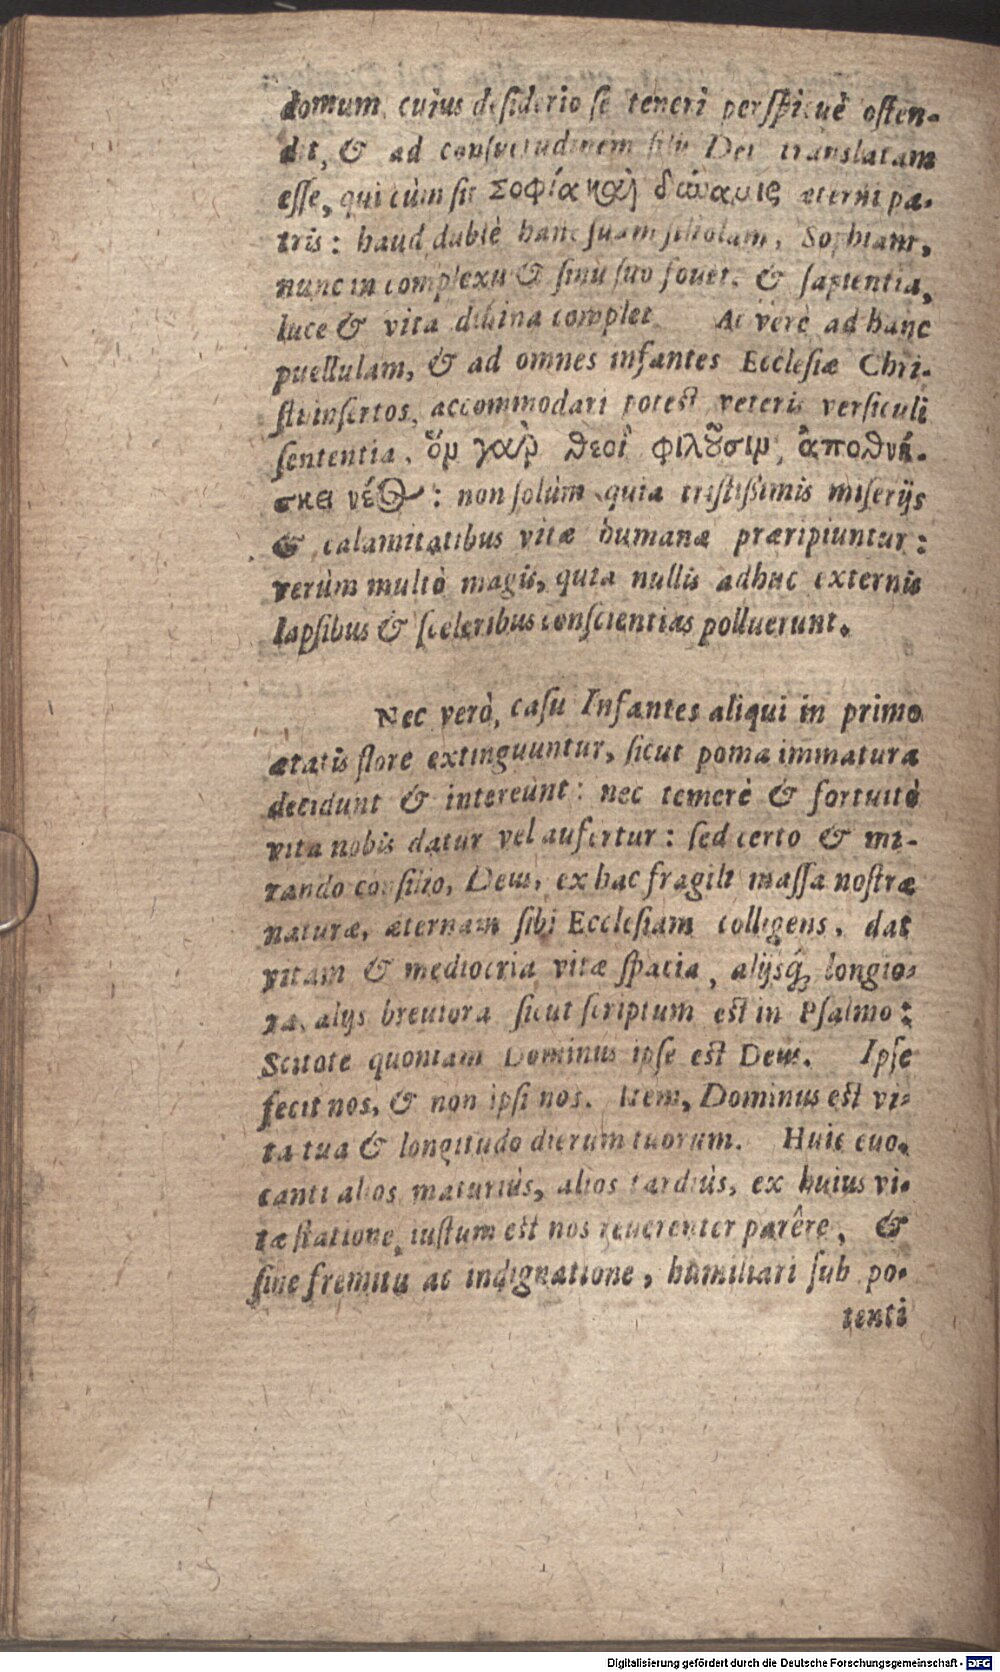 domum, cuius desiderio se teneri perspicuè osten-
dit, & ad consuetudinem filii Dei translatam
esse, qui cùm sit Σοφία καὶ δύναμις æterni pa-
tris: haud dubiè hanc suam filiolam, Sophiam,
nunc in complexu & sinu suo fouet, & sapientia,
luce & vita diuina complet. Ac verè ad hanc
puellulam, & ad omnes infantes Ecclesiæ Chri-
sti insertos, accommodari potest veteris versiculi
sententia, ὅν γὰρ θεοὶ φιλοῦσιν, ἀποθνή-
σκει νέος: non solùm quia tristissimis miserijs
& calamitatibus vitæ humanæ præripiuntur:
verùm multò magis, quia nullis adhuc externis
lapsibus & sceleribus conscientias polluerunt.
Nec verò, casu Infantes aliqui in primo
ætatis flore extinguuntur, sicut poma immatura
decidunt & intereunt: nec temerè & fortuitò
vita nobis datur vel aufertur: sed certo & mi-
rando consilio, Deus, ex hac fragili massa nostræ
naturæ, æternam sibi Ecclesiam colligens, dat
vitam & mediocria vitæ spacia, alijsq́; longio-
ra, alijs breuiora sicut scriptum est in Psalmo:
Scitote quoniam Dominus ipse est Deus. Ipse
fecit nos, & non ipsi nos. Item, Dominus est vi-
ta tua & longitudo dierum tuorum. Huic euo-
canti alios maturiùs, alios tardiùs, ex huius vi-
tæ statione, iustum est nos reuerenter parêre, &
sine fremitu ac indignatione, humiliari sub po-
tenti
Digitalisierung gefördert durch die Deutsche Forschungsgemeinschaft - DFG